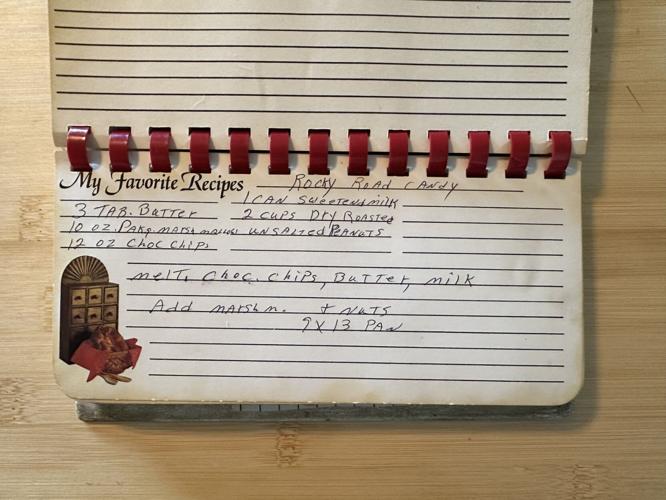 My Favorite Recipes Rocky Road Candy
1 Can Sweetened milk
3 TAB. Butter 2 cups Dry Roasted
10 oz. Pakg. marshmallows unsalted Peanuts
12 oz Choc Chips
melt, choc. chips, Butter, milk
Add marshm. + nuts
9x13 PAN